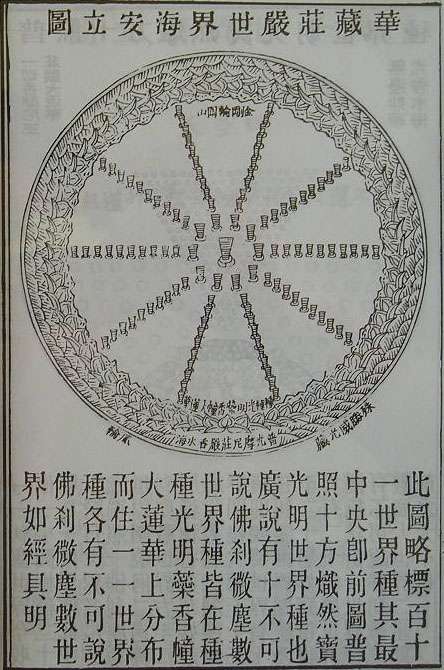 華藏莊嚴世界海安立圖
金剛輪圍山
種種光明蘂香幢大蓮華
普光摩尼莊嚴香水海
殊勝威光藏
風輪
此圖略標百十
一世界種其最
中央卽前圖普
照十方熾然寶
光明世界種也
廣說有十不可
說佛刹微塵數
世界種皆在種
種光明蘂香幢
大蓮華上分布
而住一一世界
種各有不可說
佛刹微塵數世
界如經具明